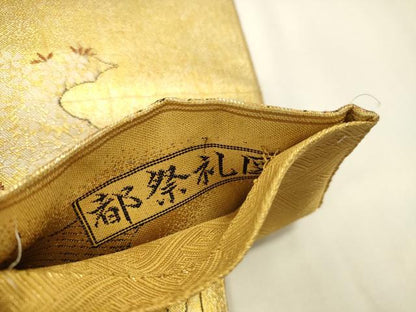 都祭礼図